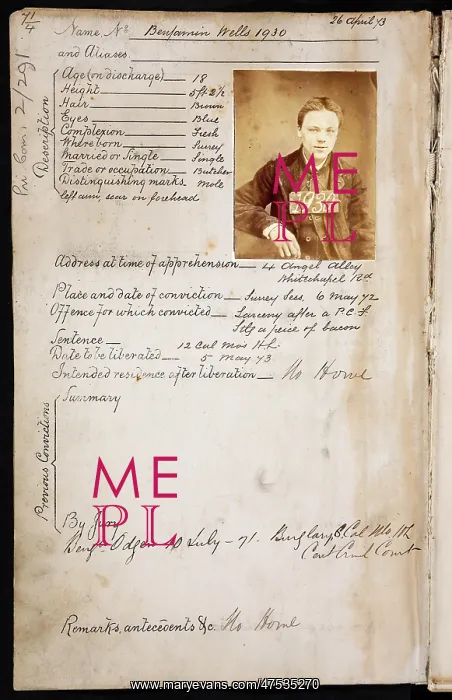 71/4
26 April 73
Name, No. Benjamin Wells 1930
and Aliases
Pri Com. 2/291
Description
Age (on discharge) 18
Height 5ft 2½
Hair Brown
Eyes Blue
Complexion Fresh
Where born Surrey
Married or Single Single
Trade or occupation Butcher
Distinguishing marks mole
left arm, scar on forehead
1930
Address at time of apprehension 4 Angel Alley
Whitechapel Rd
Place and date of conviction Surrey Sess. 6 May 72
Offence for which convicted Larceny after a P.C.F.
Stlg a peice of bacon
Sentence 12 Cal Mos H.L.
Date to be liberated 5 May 73
Intended residence after liberation No Home
Previous Convictions
Summary
By Jury
Benjn 10 July - 71. Burglary 8 Cal Mo Hl
Cent Crml Court
Remarks, antecedents &c. No Home
ME
PL
ME
PL
www.maryevans.com/47535270